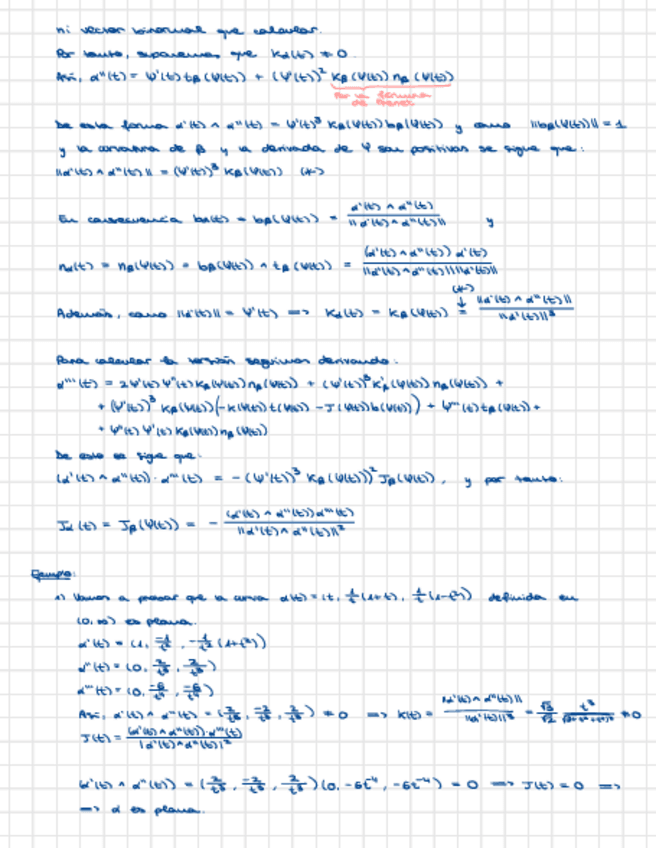 ni vector binormal que calcular.
Por tanto, suponemos que Kα(t) ≠ 0.
Así, α''(t) = Ψ''(t) tβ(Ψ(t)) + (Ψ'(t))² Kβ(Ψ(t)) nβ(Ψ(t))
Por la fórmula
de Frenet
De esta forma α'(t) ∧ α''(t) = Ψ'(t)³ Kβ(Ψ(t)) bβ(Ψ(t)) y como ||bβ(Ψ(t))|| = 1
y la curvatura de β y la derivada de Ψ son positivas se sigue que:
||α'(t) ∧ α''(t)|| = (Ψ'(t))³ Kβ(Ψ(t)) (*)
En consecuencia bα(t) = bβ(Ψ(t)) = α'(t) ∧ α''(t) / ||α'(t) ∧ α''(t)|| y
nα(t) = nβ(Ψ(t)) = bβ(Ψ(t)) ∧ tβ(Ψ(t)) = (α'(t) ∧ α''(t)) α'(t) / ||α'(t) ∧ α''(t)|| ||α'(t)||
Además, como ||α'(t)|| = Ψ'(t) => Kα(t) = Kβ(Ψ(t)) (*)↓= ||α'(t) ∧ α''(t)|| / ||α'(t)||³
Para calcular la torsión seguimos derivando:
α'''(t) = 2Ψ'(t) Ψ''(t) Kβ(Ψ(t)) nβ(Ψ(t)) + (Ψ'(t))³ K'β(Ψ(t)) nβ(Ψ(t)) +
+ (Ψ'(t))³ Kβ(Ψ(t)) (-K(Ψ(t)) t(Ψ(t)) - J(Ψ(t)) b(Ψ(t))) + Ψ'''(t) tβ(Ψ(t)) +
+ Ψ''(t) Ψ'(t) Kβ(Ψ(t)) nβ(Ψ(t))
De esto se sigue que:
(α'(t) ∧ α''(t)) · α'''(t) = - (Ψ'(t))³ Kβ(Ψ(t)))² Jβ(Ψ(t)), y por tanto:
Jα(t) = Jβ(Ψ(t)) = - (α'(t) ∧ α''(t)) α'''(t) / ||α'(t) ∧ α''(t)||²
Ejemplo:
1) Vamos a probar que la curva α(t) = (t, 1/t (1+t), 1/t (1-t²)) definida en
(0, ∞) es plana.
α'(t) = (1, -1/t², -1/t² (1+t²))
α''(t) = (0, 2/t³, 2/t³)
α'''(t) = (0, -6/t⁴, -6/t⁴)
Así, α'(t) ∧ α''(t) = (2/t³, -2/t³, 2/t³) ≠ 0 => K(t) = ||α'(t) ∧ α''(t)|| / ||α'(t)||³ = √3/√2 ≠ 0
J(t) = (α'(t) ∧ α''(t)) · α'''(t) / |α'(t) ∧ α''(t)|²
(α'(t) ∧ α''(t)) = (2/t³, -2/t³, 2/t³) (0, -6t⁻⁴, -6t⁻⁴) = 0 => J(t) = 0 =>
=> α es plana.